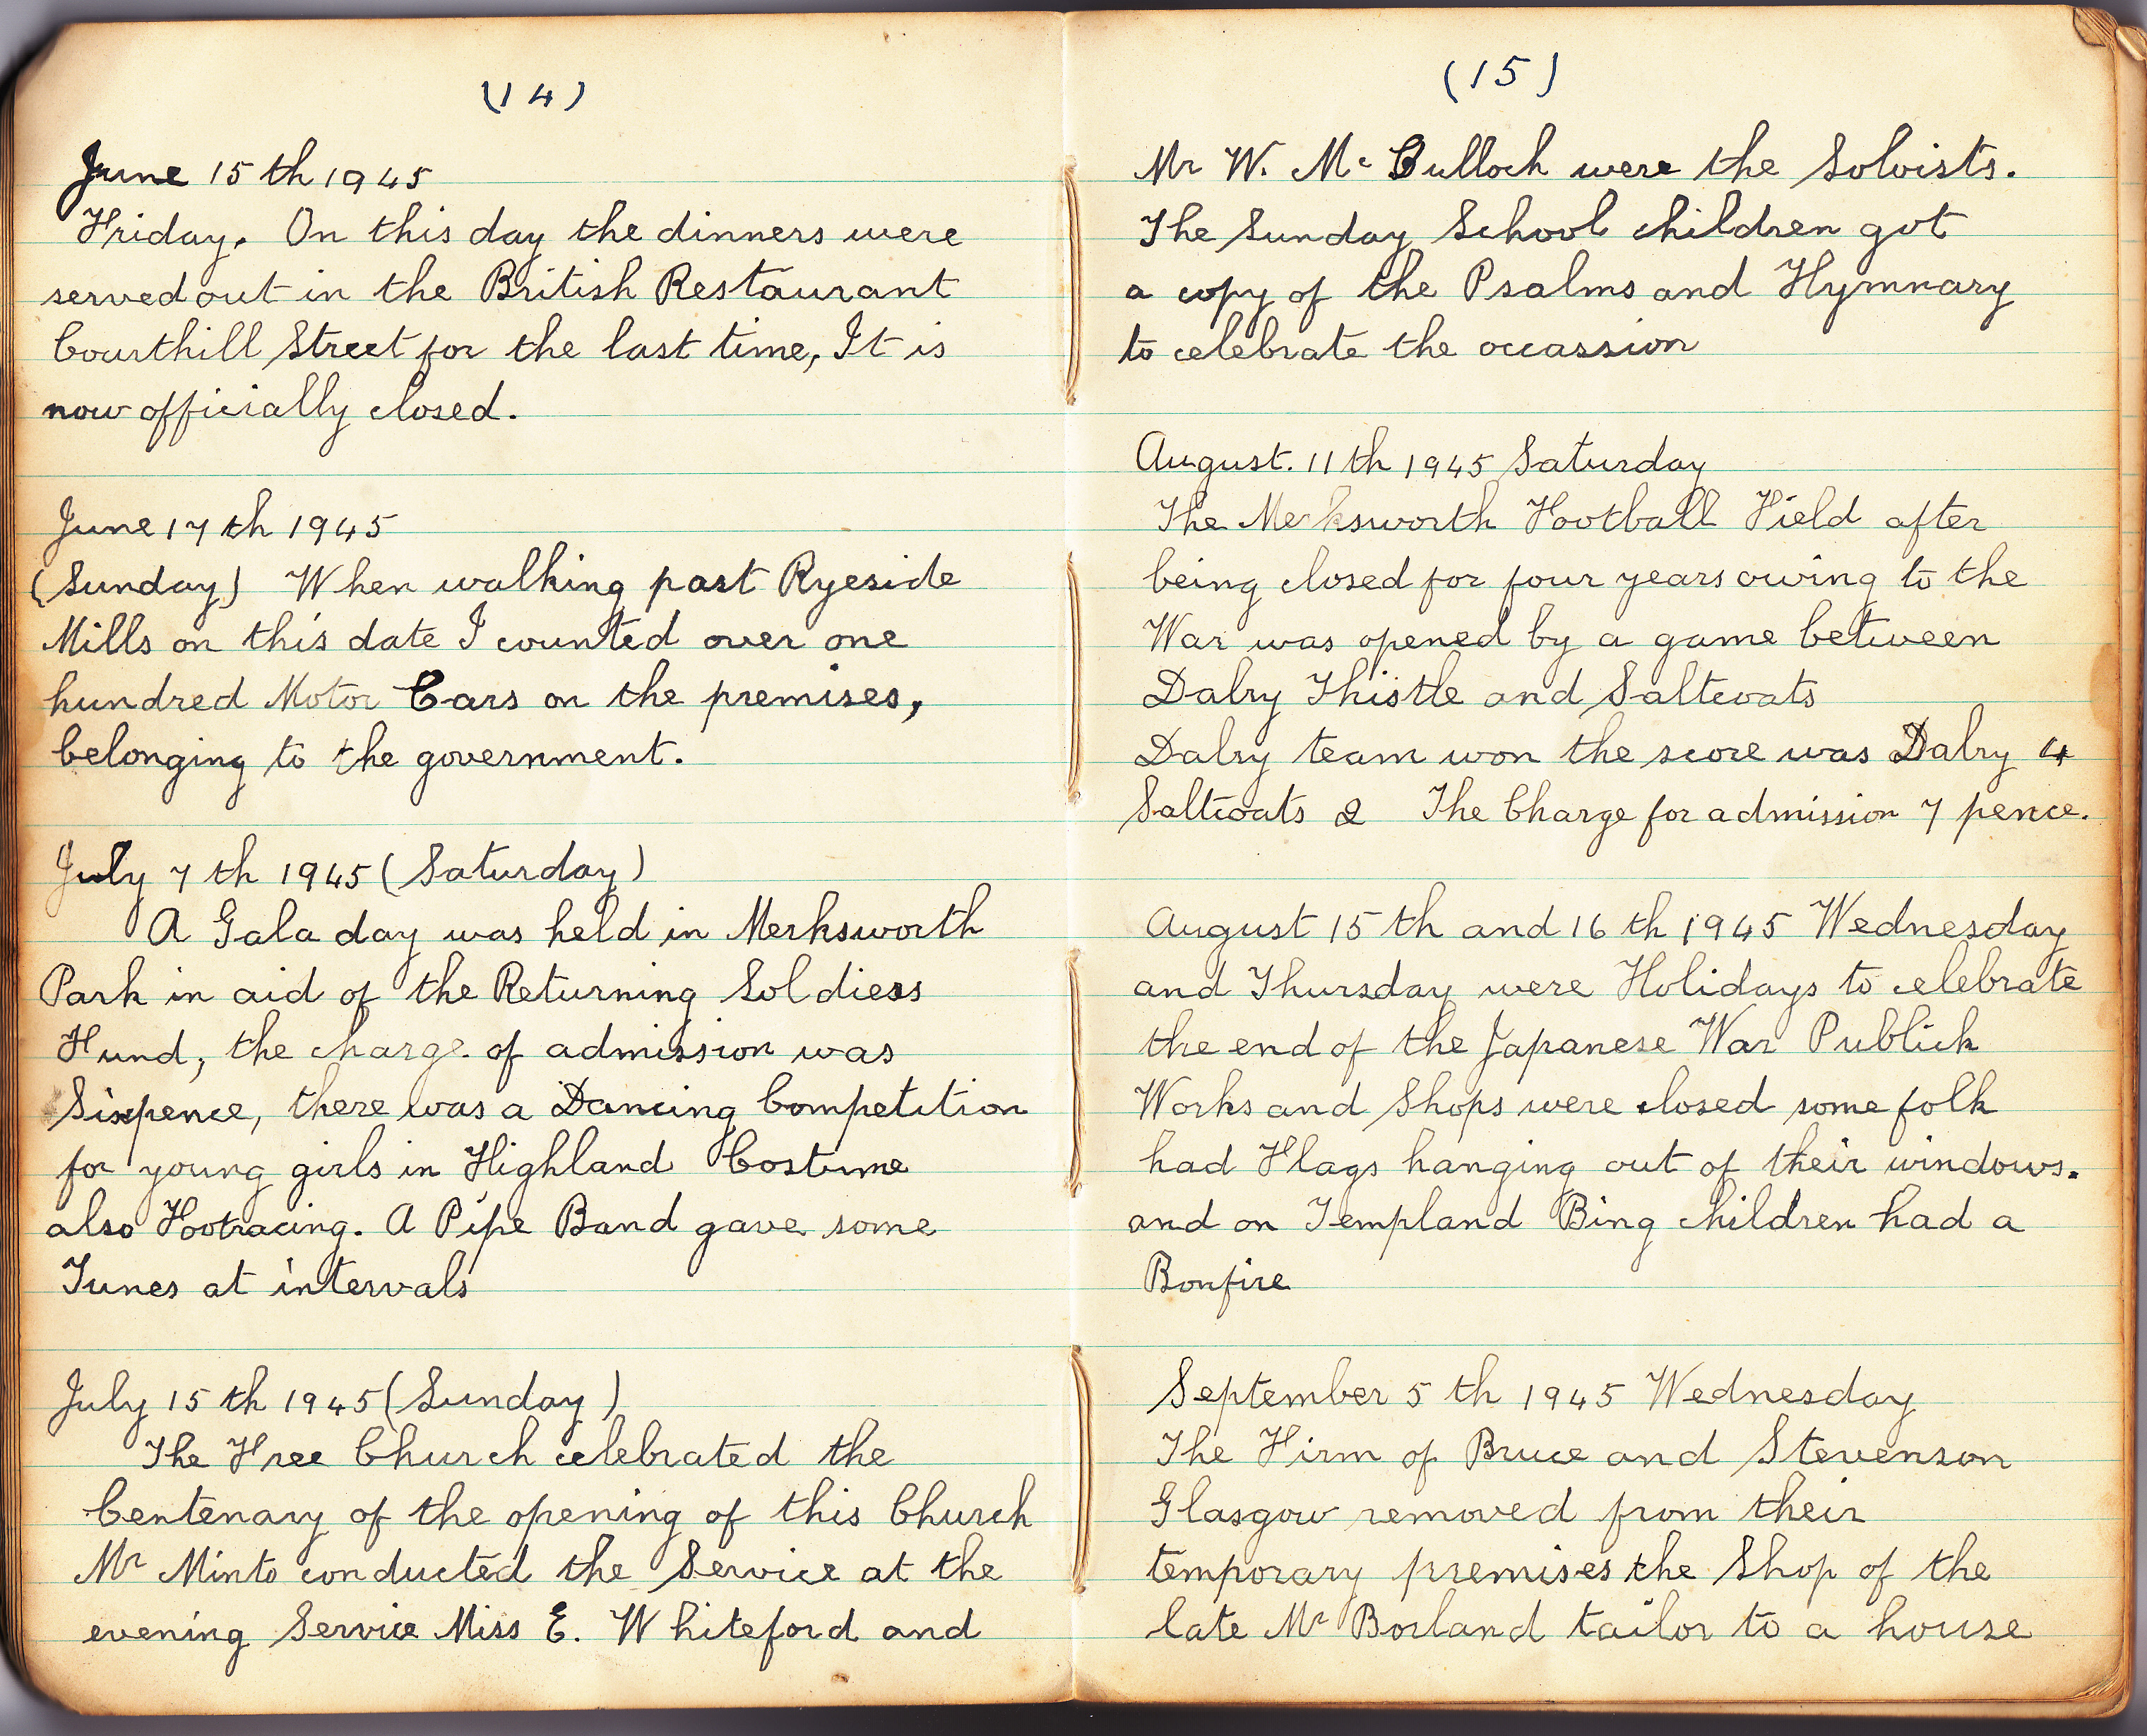 (14)
June 15th 1945
Friday. On this day the dinners were
served out in the British Restaurant
Courthill Street for the last time, It is
now officially closed.
June 17th 1945
(Sunday) When walking past Ryeside
Mills on this date I counted over one
hundred Motor Cars on the premises,
belonging to the government.
July 7th 1945 (Saturday)
A Gala day was held in Merksworth
Park in aid of the Returning Soldiers
Fund, the charge of admission was
Sixpence, there was a Dancing Competition
for young girls in Highland Costume
also Footracing. A Pipe Band gave some
Tunes at intervals
July 15th 1945 (Sunday)
The Free Church celebrated the
Centenary of the opening of this Church
Mr Minto conducted the Service at the
evening Service Miss E. Whiteford and
(15)
Mr W. Mc Culloch were the Soloists.
The Sunday School children got
a copy of the Psalms and Hymnary
to celebrate the occassion
August. 11th 1945 Saturday
The Merksworth Football Field after
being closed for four years owing to the
War was opened by a game between
Dalry Thistle and Saltcoats
Dalry team won the score was Dalry 4
Saltcoats 2 The Charge for admission 7 pence.
August 15th and 16th 1945 Wednesday
and Thursday were Holidays to celebrate
the end of the Japanese War Publick
Works and Shops were closed some folk
had Flags hanging out of their windows.
and on Templand Bing children had a
Bonfire
September 5th 1945 Wednesday
The Firm of Bruce and Stevenson
Glasgow removed from their
temporary premises the Shop of the
late Mr Borland tailor to a house